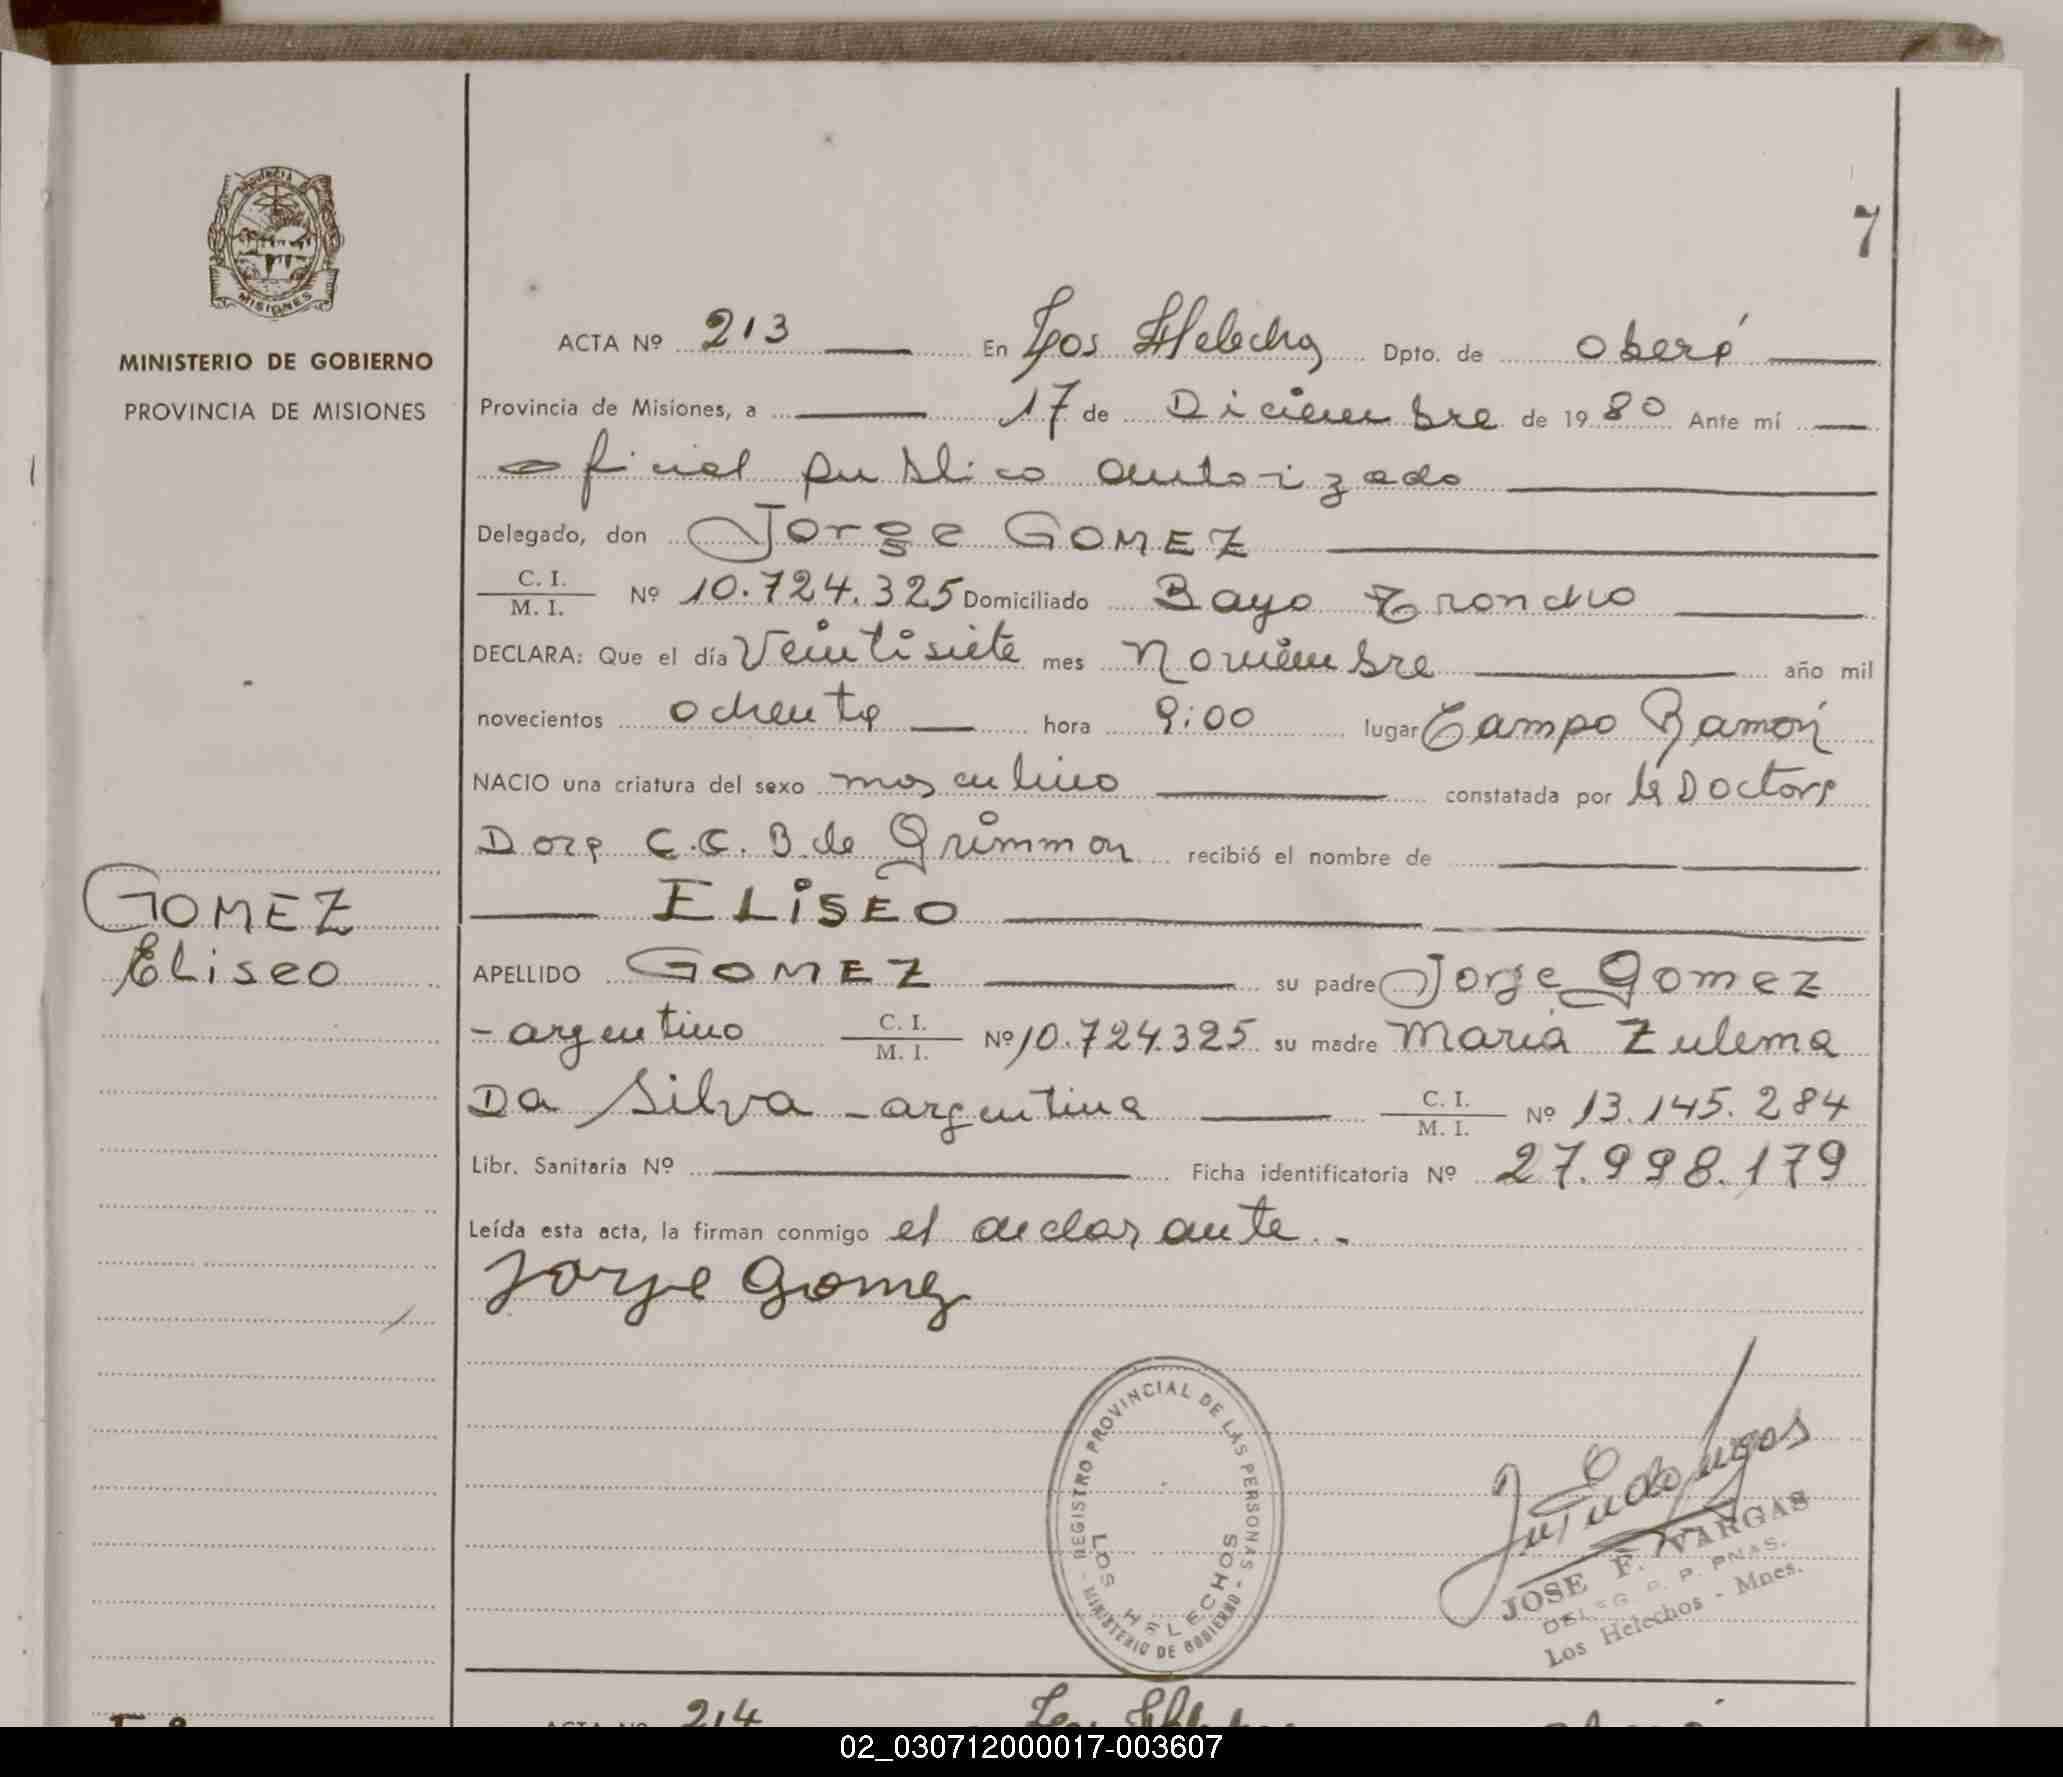 7
PROVINCIA D
MISIONES
MINISTERIO DE GOBIERNO
PROVINCIA DE MISIONES
GOMEZ
Eliseo
ACTA Nº 213 En Los Helechos Dpto. de Oberá
Provincia de Misiones, a 17 de Diciembre de 1980 Ante mí
oficial publico autorizado
Delegado, don Jorge GOMEZ
C. I.
M. I. Nº 10.724.325 Domiciliado Bayo Troncho
DECLARA: Que el día Veintisiete mes Noviembre año mil
novecientos ochenta hora 9:00 lugar Campo Ramón
NACIO una criatura del sexo masculino constatada por la Doctora
Dora C.C. B. de Grimmon recibió el nombre de
ELISEO
APELLIDO GOMEZ su padre Jorge Gomez
-argentino C. I.
M. I. Nº 10.724.325 su madre Maria Zulema
Da Silva - argentina C. I.
M. I. Nº 13.145.284
Libr. Sanitaria Nº Ficha identificatoria Nº 27.998.179
Leída esta acta, la firman conmigo el declarante.-
Jorge Gomez
REGISTRO PROVINCIAL DE LAS PERSONAS - MINISTERIO DE GOBIERNO -
LOS HELECHOS
JOSE F. VARGAS
DELEG. R. P. PNAS.
Los Helechos - Mnes.
ACTA Nº 214
02_030712000017-003607